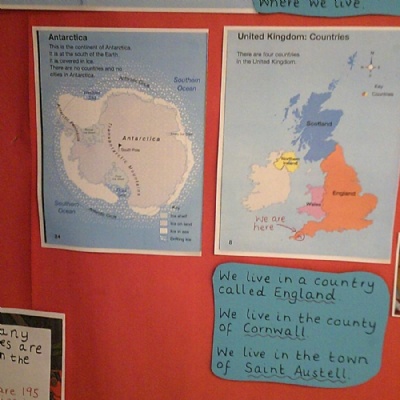 where we live.
Antarctica
This is the continent of Antarctica.
It is at the south of the Earth.
It is covered in ice.
There are no countries and no
cities in Antarctica.
Antarctic Circle
Southern
Ocean
Antarctica
South Pole
Transantarctic Mountains
Southern
Ocean
Antarctic Circle
Key
Ice shelf
Ice on land
Ice in sea
Drifting ice
54
United Kingdom: Countries
There are four countries
in the United Kingdom.
Key
Countries
Scotland
Northern
Ireland
England
Wales
we are
here
We live in a country
called England
We live in the county
of Cornwall.
We live in the town
of Saint Austell.
any
es are
n the
are 195